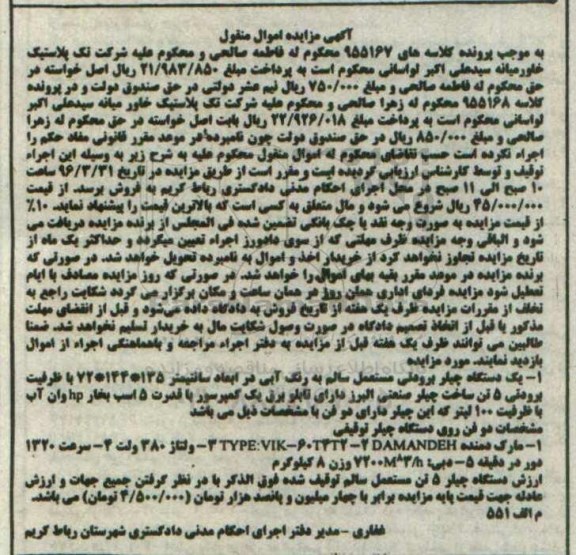 آگهی مزایده اموال منقول
به موجب پرونده کلاسه های ۹۵۵۱۶۷ محکوم له فاطمه صالحی و محکوم علیه شرکت تک پلاستیک
خاورمیانه سیدعلی اکبر لواسانی محکوم است به پرداخت مبلغ ۲۱/۹۸۳/۸۵۰ ریال اصل خواسته در
حق محکوم له فاطمه صالحی و مبلغ ۷۵۰/۰۰۰ ریال نیم عشر دولتی در حق صندوق دولت و در پرونده
کلاسه ۹۵۵۱۶۸ محکوم له زهرا صالحی و محکوم علیه شرکت تک پلاستیک خاور میانه سیدعلی اکبر
لواسانی محکوم است به پرداخت مبلغ ۲۲/۹۲۶/۰۱۸ ریال بابت اصل خواسته در حق محکوم له زهرا
صالحی و مبلغ ۸۵۰/۰۰۰ ریال در حق صندوق دولت چون نامبرده در موعد مقرر قانونی مفاد حکم را
اجراء نکرده است حسب تقاضای محکوم له اموال منقول محکوم علیه به شرح زیر به وسیله این اجراء
توقیف و توسط کارشناس ارزیابی گردیده است و مقرر است از طریق مزایده در تاریخ ۹۶/۳/۳۱ ساعت
۱۰ صبح الی ۱۱ صبح در محل اجرای احکام مدنی دادگستری رباط کریم به فروش برسد. از قیمت
۴۵/۰۰۰/۰۰۰ ریال شروع می شود و مال متعلق به کسی است که بالاترین قیمت را پیشنهاد نماید. ۱۰٪
از قیمت مزایده به صورت وجه نقد یا چک بانکی تضمین شده فی المجلس از برنده مزایده دریافت می
شود و الباقی وجه مزایده ظرف مهلتی که از سوی دادورز اجراء تعیین میگردد و حداکثر یک ماه از
تاریخ مزایده تجاوز نخواهد کرد از خریدار اخذ و اموال به نامبرده تحویل خواهد شد. در صورتی که
برنده مزایده در موعد مقرر بقیه بهای اموال را خواهد شد. در صورتی که روز مزایده مصادف با ایام
تعطیل شود مزایده فردای اداری همان روز در همان ساعت و مکان برگزار می گردد شکایت راجع به
تخلف از مقررات مزایده ظرف یک هفته از تاریخ فروش به دادگاه داده می‌شود و قبل از انقضای مهلت
مذکور یا قبل از اتخاذ تصمیم دادگاه در صورت وصول شکایت مال به خریدار تسلیم نخواهد شد. ضمنا
طالبین می توانند ظرف یک هفته قبل از مزایده به دفتر اجراء مراجعه و باهماهنگی اجراء از اموال
بازدید نمایند. مورد مزایده
۱- یک دستگاه چیلر برودتی مستعمل سالم به رنگ آبی در ابعاد سانتیمتر ۱۳۵*۱۴۴*۷۲ با ظرفیت
برودتی ۵ تن ساخت چیلر صنعتی البرز دارای تابلو برق یک کمپرسور با قدرت ۵ اسب بخار hp وان آب
با ظرفیت ۱۰۰ لیتر که این چیلر دارای دو فن با مشخصات ذیل می باشد
مشخصات دو فن روی دستگاه چیلر توقیفی
۱- مارک دمنده DAMANDEH ۲- TYPE:VIK-۶۰T۴T۲ ۳- ولتاژ ۳۸۰ ولت ۴- سرعت ۱۳۲۰
دور در دقیقه ۵- دبی: ۷۲۰۰M^۳/h وزن ۸ کیلوگرم
ارزش دستگاه چیلر ۵ تن مستعمل سالم توقیف شده فوق الذکر با در نظر گرفتن جمیع جهات و ارزش
عادله جهت قیمت پایه مزایده برابر با چهار میلیون و پانصد هزار تومان (۴/۵۰۰/۰۰۰ تومان) می باشد.
م الف ۵۵۱
غفاری - مدیر دفتر اجرای احکام مدنی دادگستری شهرستان رباط کریم